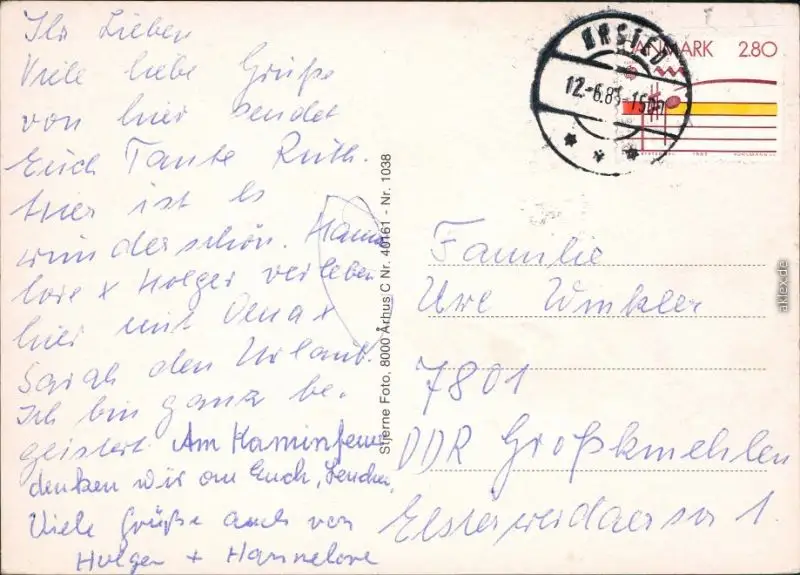 Ihr Lieben
Viele liebe Grüße
von hier sendet
Euch Tante Ruth.
Hier ist es
wunderschön. Hanne
lore + Holger verleben
hier mit Jena +
Sarah den Urlaub.
Ich bin ganz be-
geistert. Am Kaminfeuer
denken wir an Euch,
Viele Grüße auch von
Holger + Hannelore
Stjerne Foto, 8000 Århus C Nr. 40161 - Nr. 1038
ØRSTED
12.-6.85-15
DANMARK 2.80
Familie
Uwe Winkler
7801
DDR Großkmehlen
1
aklex.de